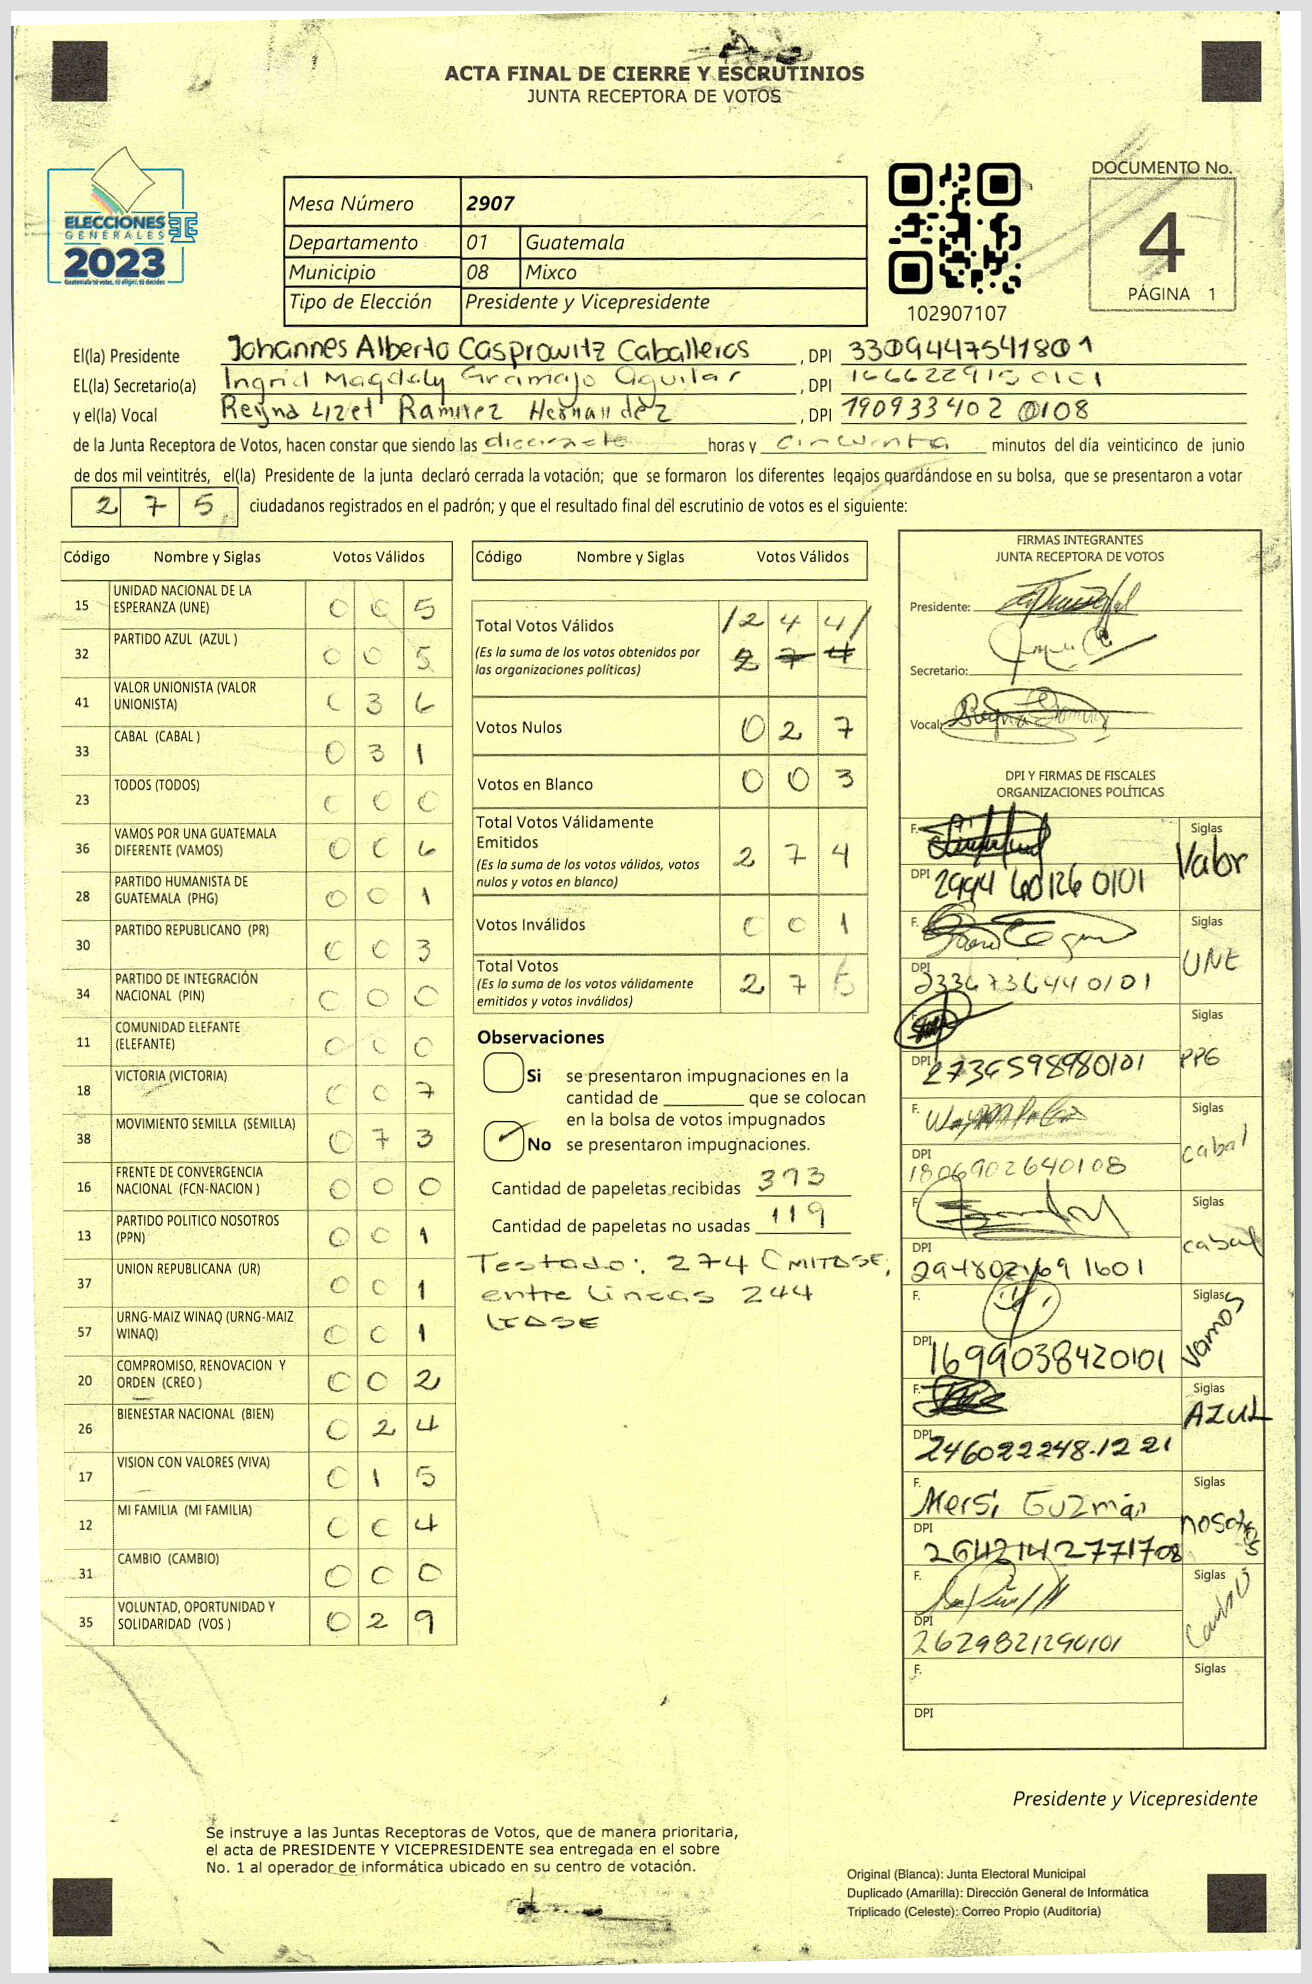 ACTA FINAL DE CIERRE Y ESCRUTINIOS
JUNTA RECEPTORA DE VOTOS
ELECCIONES
GENERALES
2023
Guatemala tú votas, tú eliges, tú decides
Mesa Número 2907
Departamento 01 Guatemala
Municipio 08 Mixco
Tipo de Elección Presidente y Vicepresidente
102907107
DOCUMENTO No.
4
PÁGINA 1
El(la) Presidente Johannes Alberto Casprowitz Caballeros, DPI 3309447541801
EL(la) Secretario(a) Ingrid Magdaly Gramajo Aguilar, DPI 1666229150101
y el(la) Vocal Reyna Lizet Ramirez Hernandez, DPI 190933402 0108
de la Junta Receptora de Votos, hacen constar que siendo las diecisiete horas y cincuenta minutos del día veinticinco de junio
de dos mil veintitrés, el(la) Presidente de la junta declaró cerrada la votación; que se formaron los diferentes legajos guardándose en su bolsa, que se presentaron a votar
2 7 5 ciudadanos registrados en el padrón; y que el resultado final del escrutinio de votos es el siguiente:
Código Nombre y Siglas Votos Válidos
15 UNIDAD NACIONAL DE LA ESPERANZA (UNE) 0 0 5
32 PARTIDO AZUL (AZUL ) 0 0 5
41 VALOR UNIONISTA (VALOR UNIONISTA) 0 3 6
33 CABAL (CABAL ) 0 3 1
23 TODOS (TODOS) 0 0 0
36 VAMOS POR UNA GUATEMALA DIFERENTE (VAMOS) 0 0 6
28 PARTIDO HUMANISTA DE GUATEMALA (PHG) 0 0 1
30 PARTIDO REPUBLICANO (PR) 0 0 3
34 PARTIDO DE INTEGRACIÓN NACIONAL (PIN) 0 0 0
11 COMUNIDAD ELEFANTE (ELEFANTE) 0 0 0
18 VICTORIA (VICTORIA) 0 0 7
38 MOVIMIENTO SEMILLA (SEMILLA) 0 7 3
16 FRENTE DE CONVERGENCIA NACIONAL (FCN-NACION ) 0 0 0
13 PARTIDO POLITICO NOSOTROS (PPN) 0 0 1
37 UNION REPUBLICANA (UR) 0 0 1
57 URNG-MAIZ WINAQ (URNG-MAIZ WINAQ) 0 0 1
20 COMPROMISO, RENOVACION Y ORDEN (CREO ) 0 0 2
26 BIENESTAR NACIONAL (BIEN) 0 2 4
17 VISION CON VALORES (VIVA) 0 1 5
12 MI FAMILIA (MI FAMILIA) 0 0 4
31 CAMBIO (CAMBIO) 0 0 0
35 VOLUNTAD, OPORTUNIDAD Y SOLIDARIDAD (VOS ) 0 2 9
Código Nombre y Siglas Votos Válidos
Total Votos Válidos /2 4 4/
(Es la suma de los votos obtenidos por las organizaciones políticas) 2 7 4
Votos Nulos 0 2 7
Votos en Blanco 0 0 3
Total Votos Válidamente Emitidos
(Es la suma de los votos válidos, votos nulos y votos en blanco) 2 7 4
Votos Inválidos 0 0 1
Total Votos
(Es la suma de los votos válidamente emitidos y votos inválidos) 2 7 5
Observaciones
Si se presentaron impugnaciones en la
cantidad de ________ que se colocan
en la bolsa de votos impugnados
No se presentaron impugnaciones.
Cantidad de papeletas recibidas 393
Cantidad de papeletas no usadas 119
Testado: 274 OMITASE,
entre lineas 244
LEASE
FIRMAS INTEGRANTES
JUNTA RECEPTORA DE VOTOS
Presidente:
Secretario:
Vocal:
DPI Y FIRMAS DE FISCALES
ORGANIZACIONES POLÍTICAS
F. Siglas Valor
DPI 2994 60126 0101
F. Siglas UNE
DPI 2336736440101
F. Siglas PPG
DPI 2736598980101
F. Siglas cabal
DPI 1806902640108
F. Siglas cabal
DPI 2948021691601
F. Siglas Vamos
DPI 1699038420101
F. Siglas AZUL
DPI 246022248.1221
F. Mersi Guzmán Siglas nosotros
DPI 2642142771708
F. Siglas
DPI 2629821290101
F. Siglas
DPI
Presidente y Vicepresidente
Se instruye a las Juntas Receptoras de Votos, que de manera prioritaria,
el acta de PRESIDENTE Y VICEPRESIDENTE sea entregada en el sobre
No. 1 al operador de informática ubicado en su centro de votación.
Original (Blanca): Junta Electoral Municipal
Duplicado (Amarilla): Dirección General de Informática
Triplicado (Celeste): Correo Propio (Auditoría)